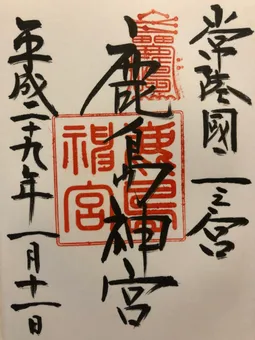 常陸國一之宮
鹿島神宮
鹿島神宮
平成二十九年一月十一日